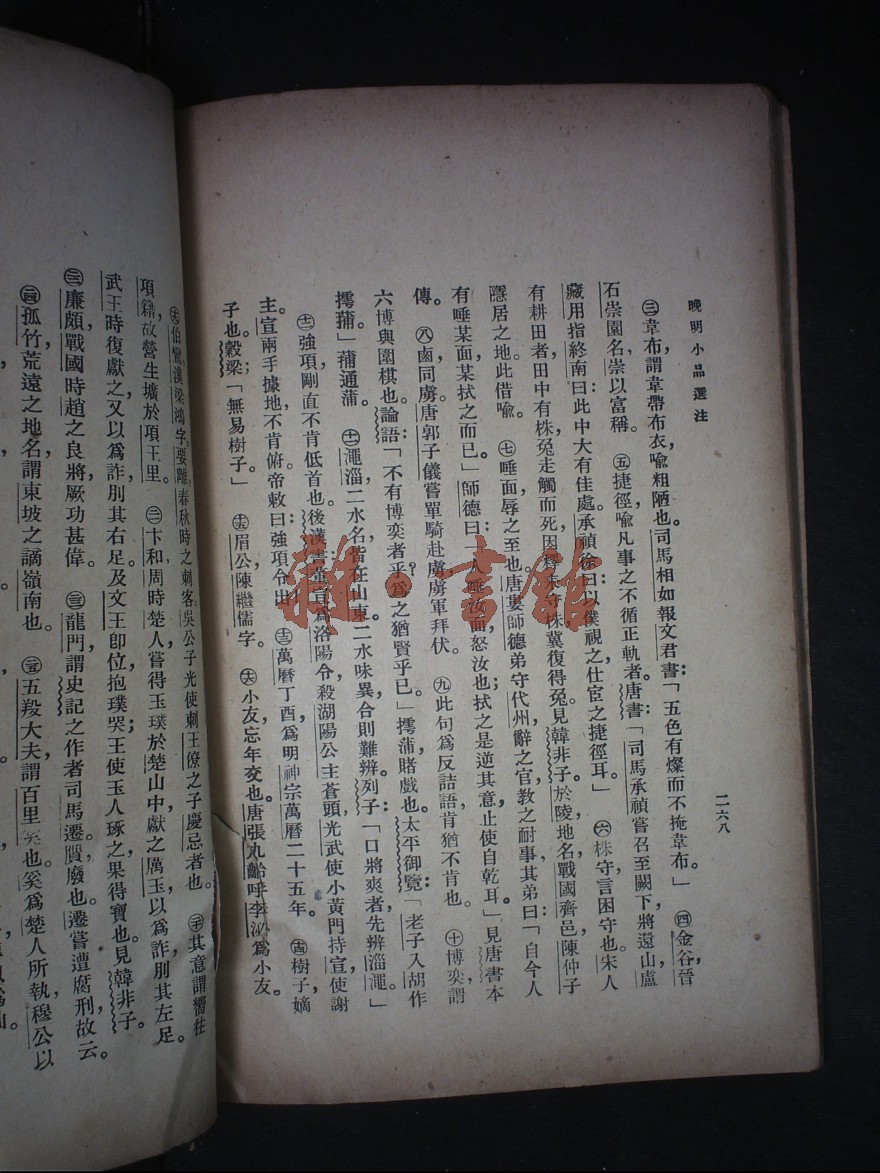 晚明小品選注
二六八
㊂韋布謂韋帶布衣，喻粗陋也。司馬相如報文君書：「五色有燦而不掩韋布。」　㊃金谷晉
石崇園名崇以富稱。　㊄捷徑，喻凡事之不循正軌者。唐書「司馬承禎嘗召至闕下，將還山盧
藏用指終南曰：此中大有佳處。承禎徐曰：以僕視之仕宦之捷徑耳。」　㊅株守言困守也。宋人
有耕田者，田中有株，兔走觸而死，因釋耒守株冀復得兔。見韓非子。於陵地名，戰國齊邑，陳仲子
隱居之地，此借喻。　㊆唾面，辱之至也。唐婁師德弟守代州，辭之官，教之耐事，其弟曰：「自今人
有唾某面，某拭之而已。」師德曰：「人唾汝面，怒汝也；拭之是逆其意，止使自乾耳。」見唐書本
傳。　㊇鹵同虜。唐郭子儀嘗單騎赴虜，虜軍拜伏。　㊈此句爲反詰語，肯猶不肯也。　㊉博奕謂
六博與圍棋也。論語：「不有博奕者乎，爲之猶賢乎已。」摴蒲賭戲也。太平御覽：「老子入胡作
摴蒲。」蒲通蒱。　澠淄，二水名，皆在山東。二水味異，合則難辨。列子：「口將爽者，先辨淄澠。」
強項剛直不肯低首也。後漢書董宣爲洛陽令，殺湖陽公主蒼頭，光武使小黃門持宣使謝
主。宣兩手據地不肯俯，帝敕曰：強項令出。　萬曆丁酉，爲明神宗萬曆二十五年。　樹子，嫡
子也。穀梁：「無易樹子」。　眉公陳繼儒字。　小友忘年交也。唐張九齡呼李泌爲小友。
伯鸞，漢梁鴻字。要離，春秋時之刺客，吳公子光使刺王僚之子慶忌者也。　其意謂嚮往
項籍，故營生壙於項王里。　卞和周時楚人，嘗得玉璞於楚山中，獻之厲王，以爲詐，刖其左足。
武王時復獻之，又以爲詐，刖其右足。及文王卽位，抱璞哭；王使玉人琢之，果得寶也。見韓非子。
廉頗，戰國時趙之良將，厥功甚偉。　龍門，謂史記之作者司馬遷。贋廢也。遷嘗遭腐刑，故云。
孤竹，荒遠之地名，謂東坡之謫嶺南也。　五羖大夫謂百里奚也。奚爲楚人所執，穆公以